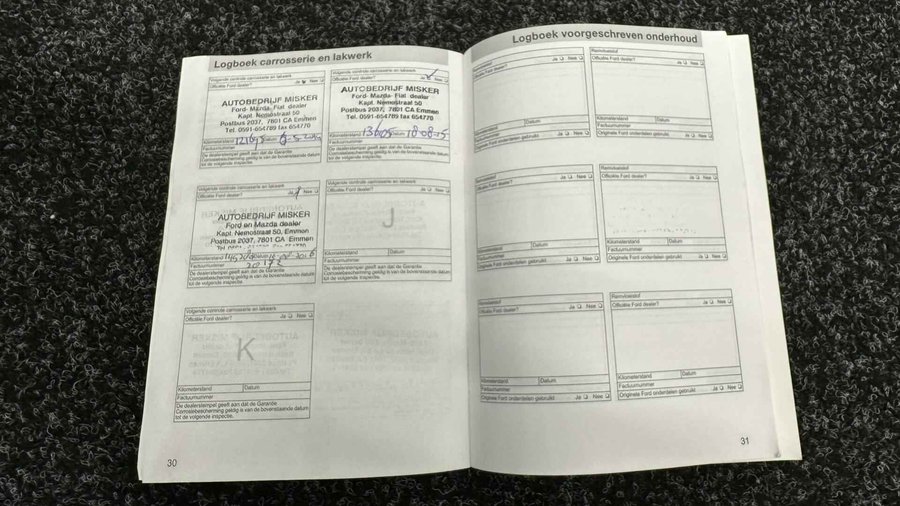 Logboek carrosserie en lakwerk
Volgende controle carrosserie en lakwerk
Officiële Ford dealer? Ja Nee
AUTOBEDRIJF MISKER
Ford- Mazda- Fiat dealer
Kapt. Nemostraat 50
Postbus 2037, 7801 CA Emmen
Tel. 0591-654789 fax 654770
Kilometerstand Datum
Factuurnummer
De dealerstempel geeft aan dat de Garantie
Corrosiebescherming geldig is van de bovenstaande datum
tot de volgende inspectie.
Volgende controle carrosserie en lakwerk
Officiële Ford dealer? Ja Nee
AUTOBEDRIJF MISKER
Ford- Mazda- Fiat dealer
Kapt. Nemostraat 50
Postbus 2037, 7801 CA Emmen
Tel. 0591-654789 fax 654770
Kilometerstand Datum 18-08-15
Factuurnummer
De dealerstempel geeft aan dat de Garantie
Corrosiebescherming geldig is van de bovenstaande datum
tot de volgende inspectie.
Volgende controle carrosserie en lakwerk
Officiële Ford dealer? Ja Nee
AUTOBEDRIJF MISKER
Ford en Mazda dealer
Kapt. Nemostraat 50, Emmen
Postbus 2037, 7801 CA Emmen
Kilometerstand
Factuurnummer
De dealerstempel geeft aan dat de Garantie
Corrosiebescherming geldig is van de bovenstaande datum
tot de volgende inspectie.
Volgende controle carrosserie en lakwerk
Officiële Ford dealer? Ja Nee
J
Kilometerstand Datum
Factuurnummer
De dealerstempel geeft aan dat de Garantie
Corrosiebescherming geldig is van de bovenstaande datum
tot de volgende inspectie.
Volgende controle carrosserie en lakwerk
Officiële Ford dealer? Ja Nee
K
Kilometerstand Datum
Factuurnummer
De dealerstempel geeft aan dat de Garantie
Corrosiebescherming geldig is van de bovenstaande datum
tot de volgende inspectie.
30
Logboek voorgeschreven onderhoud
Remvloeistof
Officiële Ford dealer? Ja Nee
Kilometerstand Datum
Factuurnummer
Originele Ford onderdelen gebruikt Ja Nee
Remvloeistof
Officiële Ford dealer? Ja Nee
Kilometerstand Datum
Factuurnummer
Originele Ford onderdelen gebruikt Ja Nee
Remvloeistof
Officiële Ford dealer? Ja Nee
Kilometerstand Datum
Factuurnummer
Originele Ford onderdelen gebruikt Ja Nee
Remvloeistof
Officiële Ford dealer? Ja Nee
Kilometerstand Datum
Factuurnummer
Originele Ford onderdelen gebruikt Ja Nee
Remvloeistof
Officiële Ford dealer? Ja Nee
Kilometerstand Datum
Factuurnummer
Originele Ford onderdelen gebruikt Ja Nee
Remvloeistof
Officiële Ford dealer? Ja Nee
Kilometerstand Datum
Factuurnummer
Originele Ford onderdelen gebruikt Ja Nee
31